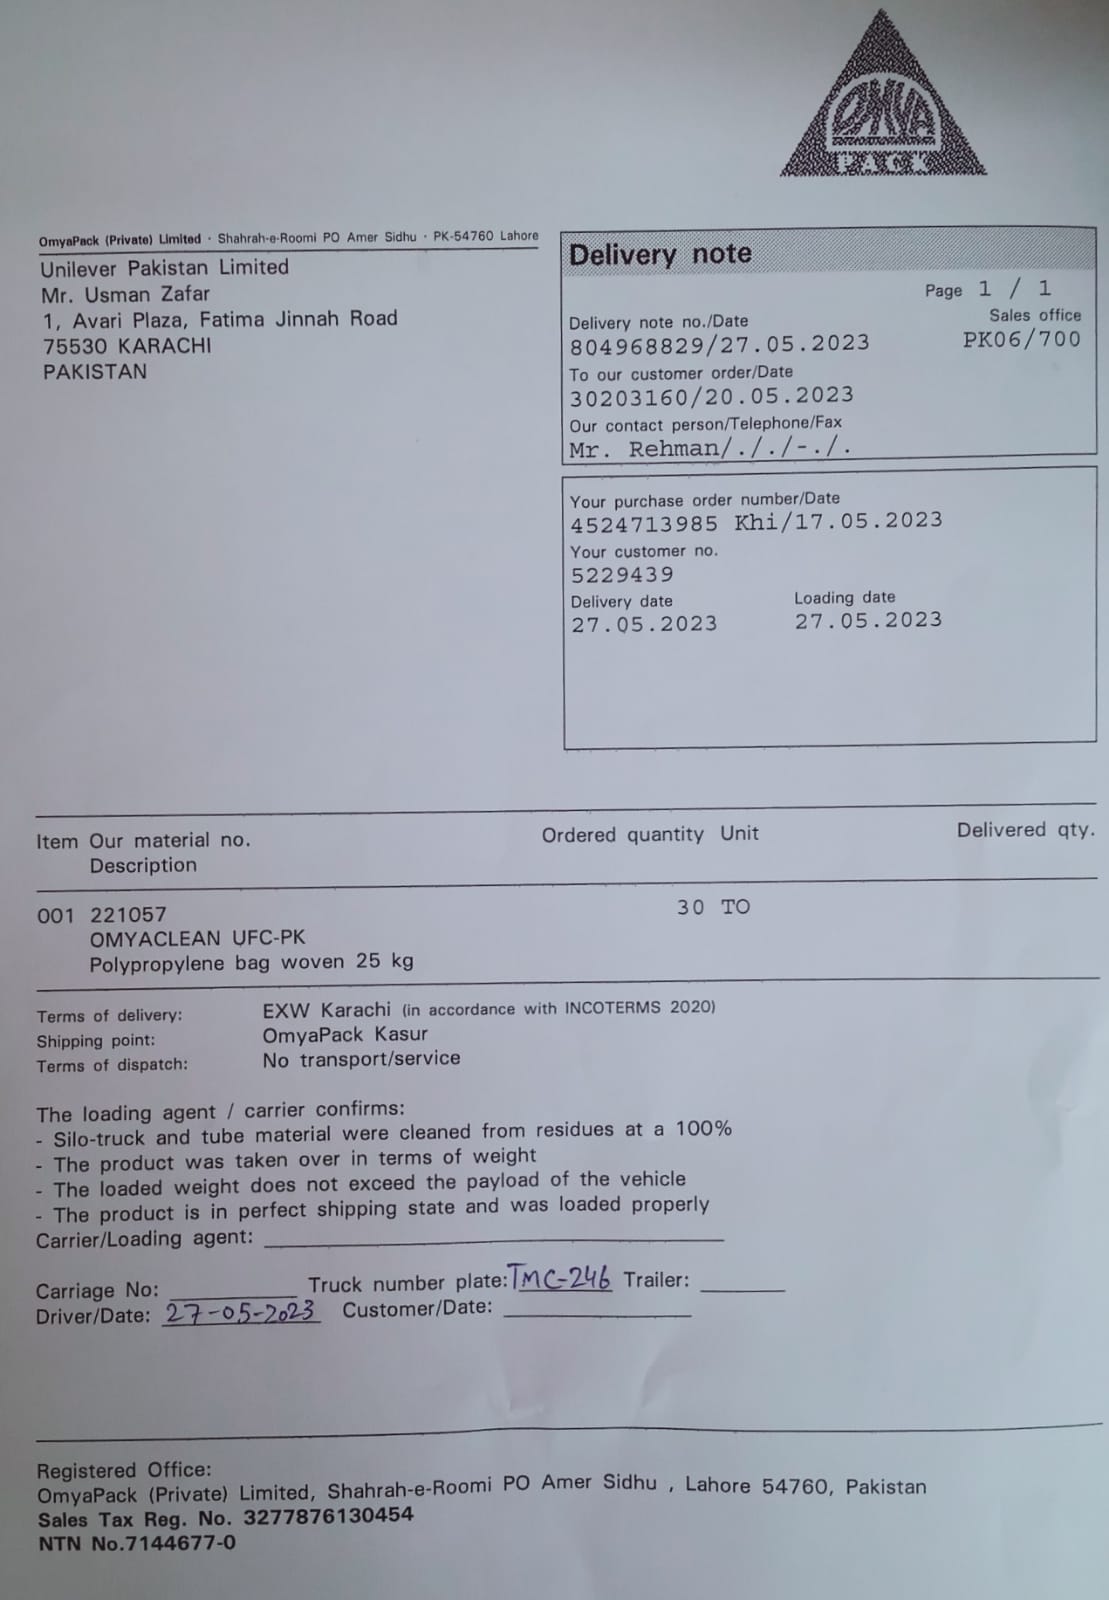 OMYA
PACK
OmyaPack (Private) Limited · Shahrah-e-Roomi PO Amer Sidhu · PK-54760 Lahore
Unilever Pakistan Limited
Mr. Usman Zafar
1, Avari Plaza, Fatima Jinnah Road
75530 KARACHI
PAKISTAN
Delivery note
Page 1 / 1
Delivery note no./Date Sales office
804968829/27.05.2023 PK06/700
To our customer order/Date
30203160/20.05.2023
Our contact person/Telephone/Fax
Mr. Rehman/././-./.
Your purchase order number/Date
4524713985 Khi/17.05.2023
Your customer no.
5229439
Delivery date Loading date
27.05.2023 27.05.2023
Item Our material no. Ordered quantity Unit Delivered qty.
Description
001 221057 30 TO
OMYACLEAN UFC-PK
Polypropylene bag woven 25 kg
Terms of delivery: EXW Karachi (in accordance with INCOTERMS 2020)
Shipping point: OmyaPack Kasur
Terms of dispatch: No transport/service
The loading agent / carrier confirms:
- Silo-truck and tube material were cleaned from residues at a 100%
- The product was taken over in terms of weight
- The loaded weight does not exceed the payload of the vehicle
- The product is in perfect shipping state and was loaded properly
Carrier/Loading agent:
Carriage No: Truck number plate: TMC-246 Trailer:
Driver/Date: 27-05-2023 Customer/Date:
Registered Office:
OmyaPack (Private) Limited, Shahrah-e-Roomi PO Amer Sidhu , Lahore 54760, Pakistan
Sales Tax Reg. No. 3277876130454
NTN No.7144677-0